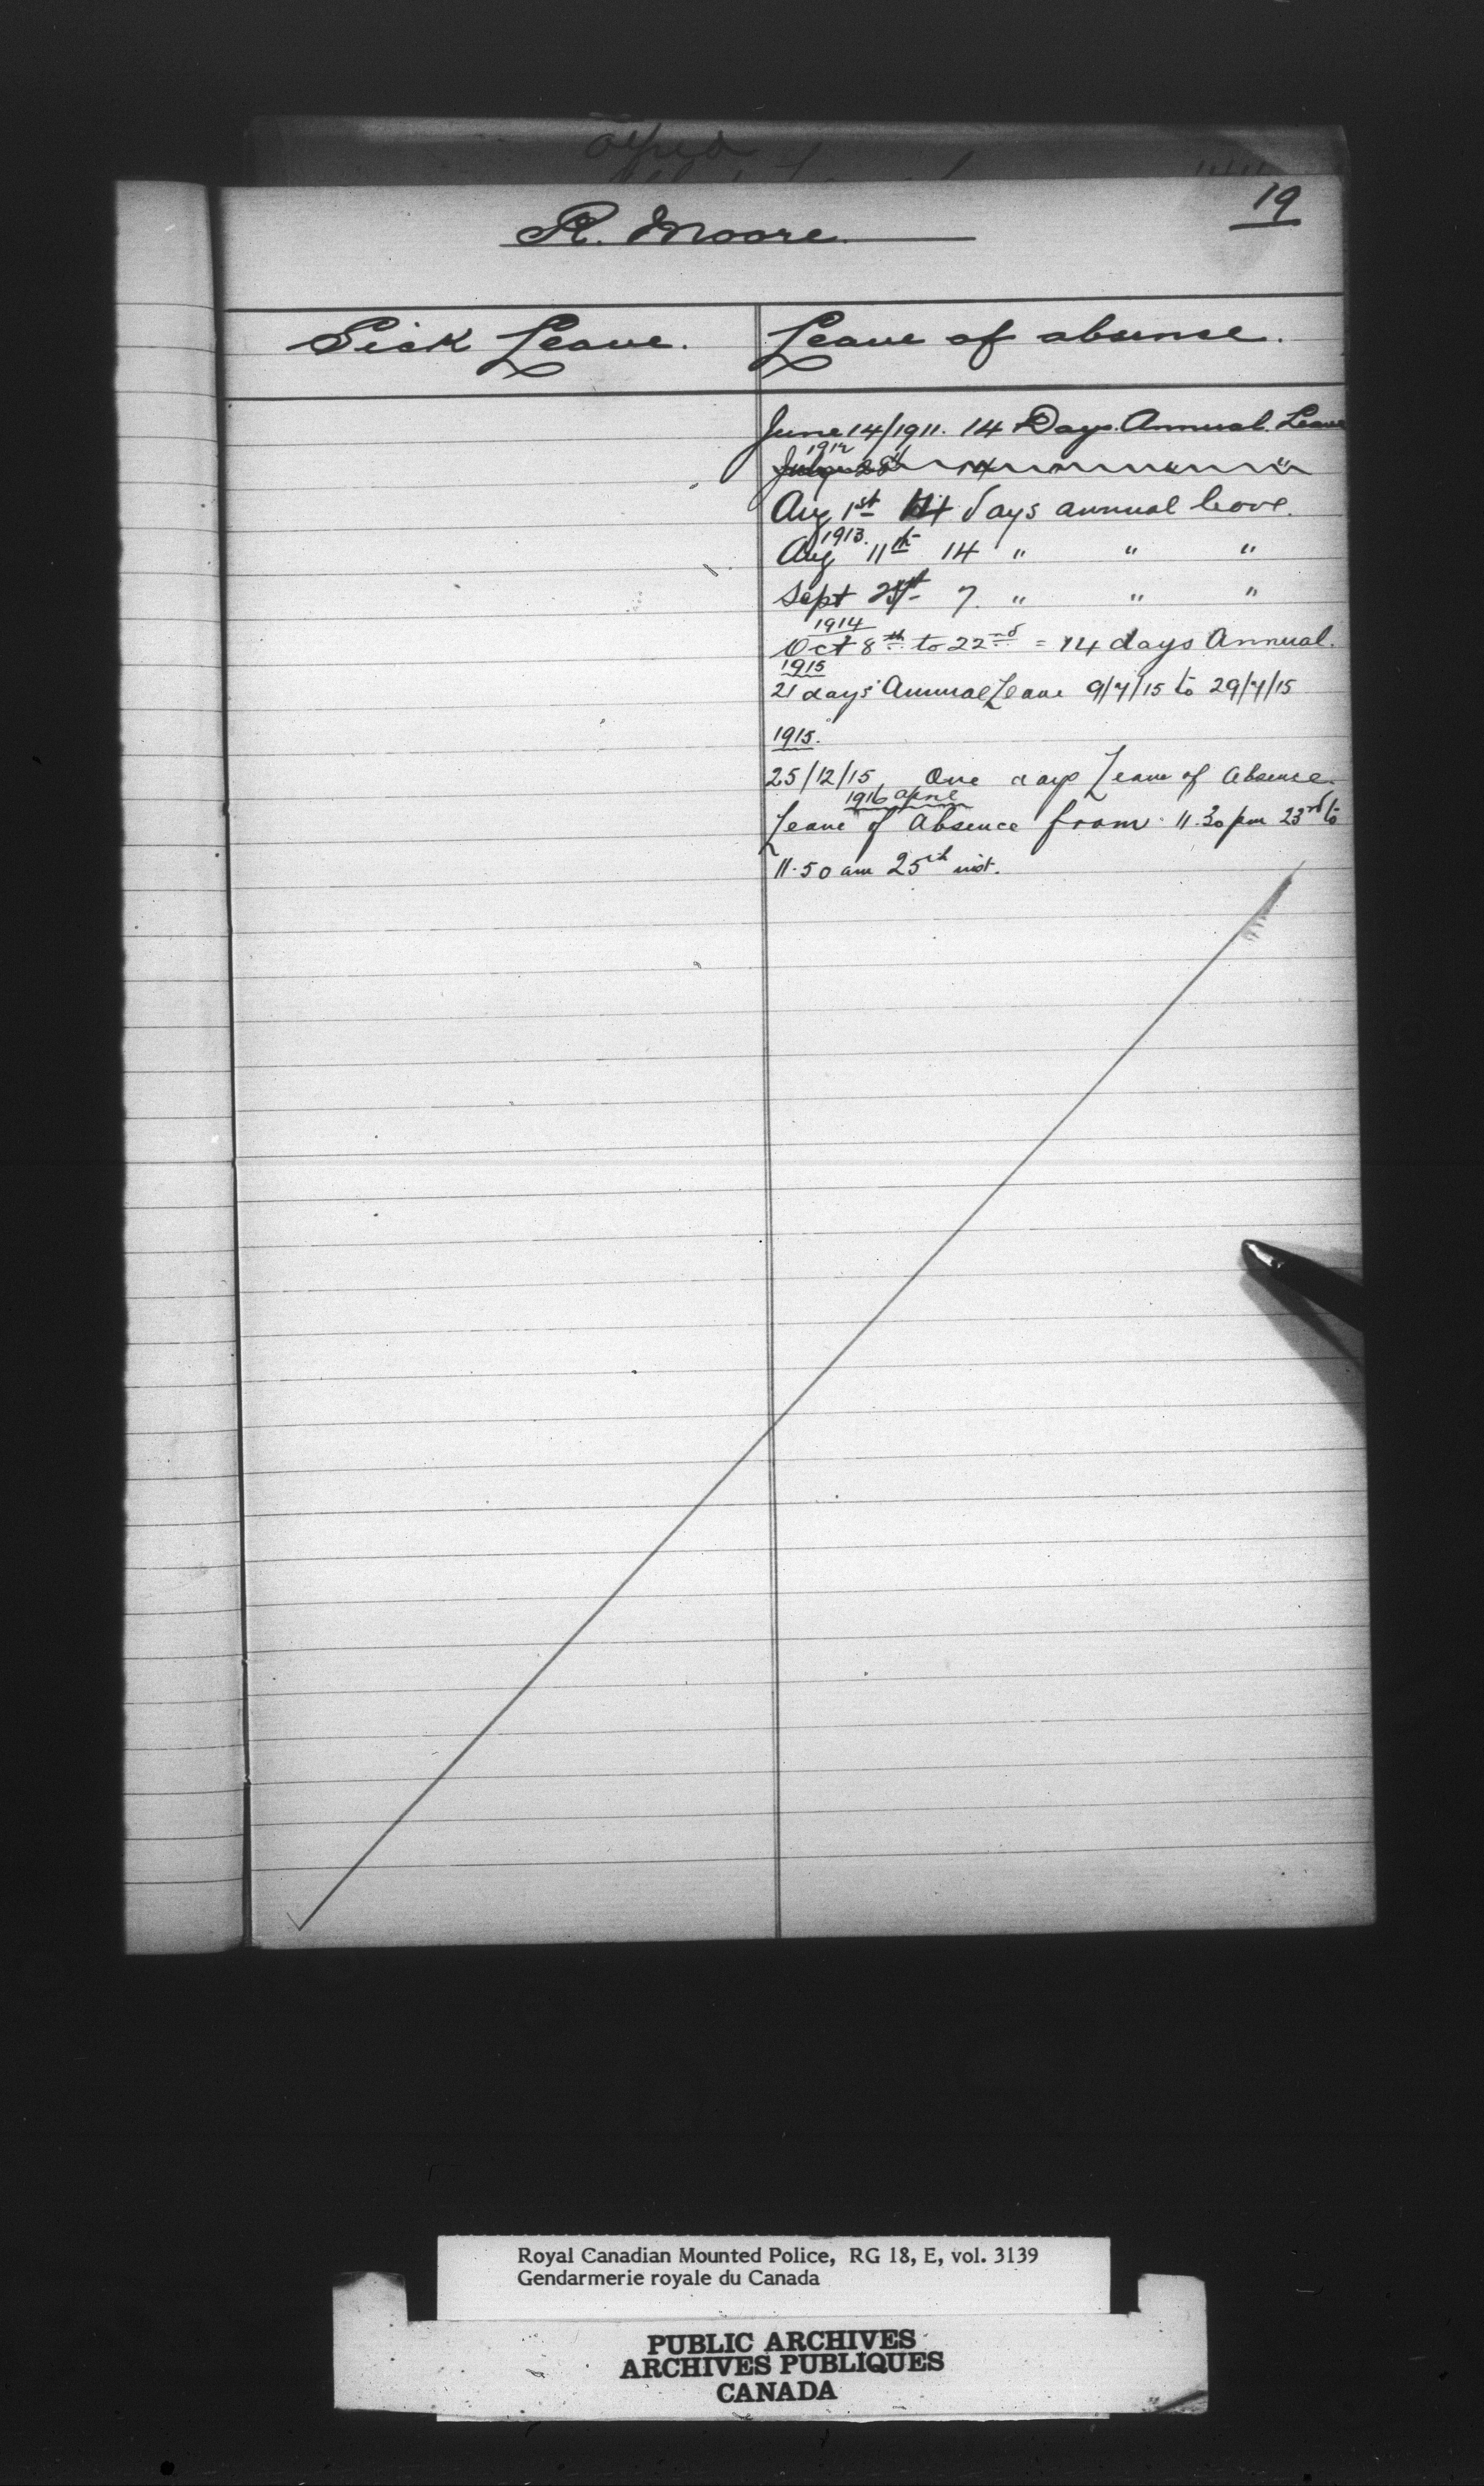 Alfred
19
R. Moore.
Sick Leave.
Leave of absense.
June 14/1911. 14 Days Annual Leave
1912
July 28th 14 " " "
Aug 1st 14 days annual leave.
1913.
Aug 11th 14 " " "
Sept 7. " " "
1914
Oct 8th to 22nd = 14 days Annual.
1915
21 days Annual Leave 9/7/15 to 29/7/15
1915.
25/12/15 One days Leave of Absence.
1916 April
Leave of Absence from 11.30 pm 23rd to
11.50 am 25th inst.
Royal Canadian Mounted Police, RG 18, E, vol. 3139
Gendarmerie royale du Canada
PUBLIC ARCHIVES
ARCHIVES PUBLIQUES
CANADA